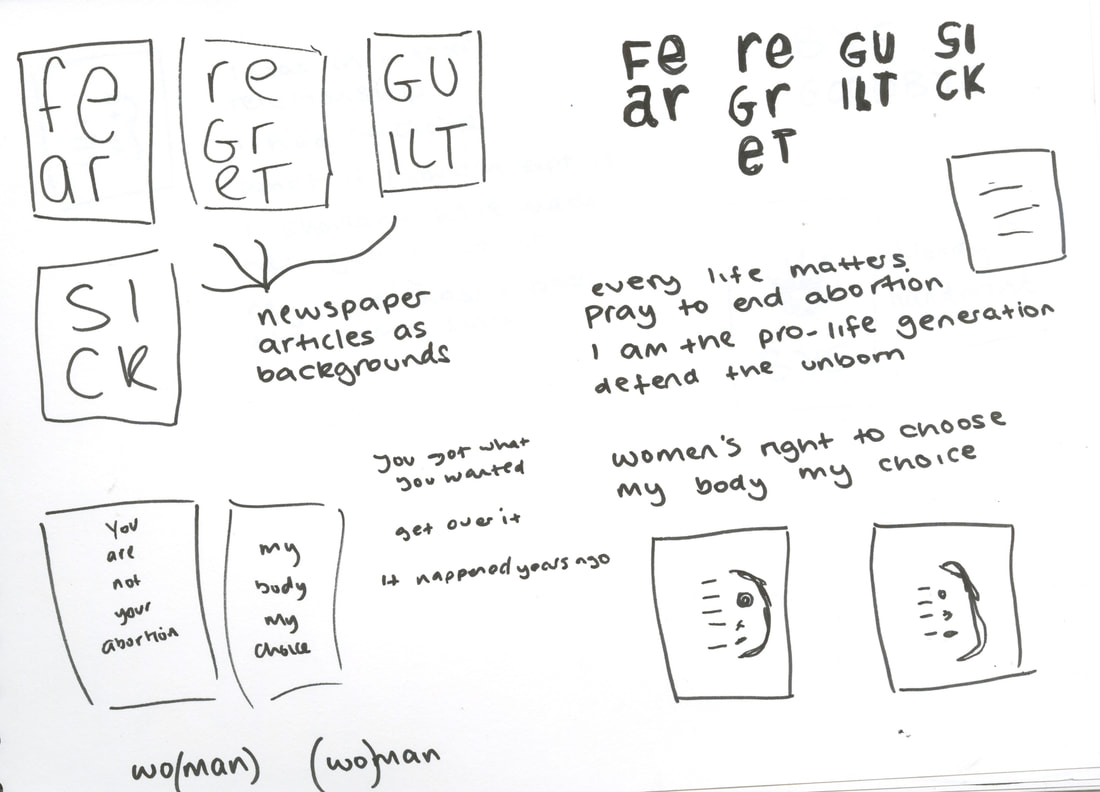 fe
ar
re
Gr
eT
GU
ILT
SI
CK
newspaper
articles as
backgrounds
Fe
ar
re
Gr
eT
GU
ILT
SI
CK
every life matters.
Pray to end abortion
I am the pro-life generation
defend the unborn
women's right to choose
my body my choice
You got what
you wanted
get over it
It happened years ago
You
are
not
your
abortion
my
body
my
choice
wo(man)
(wo)man